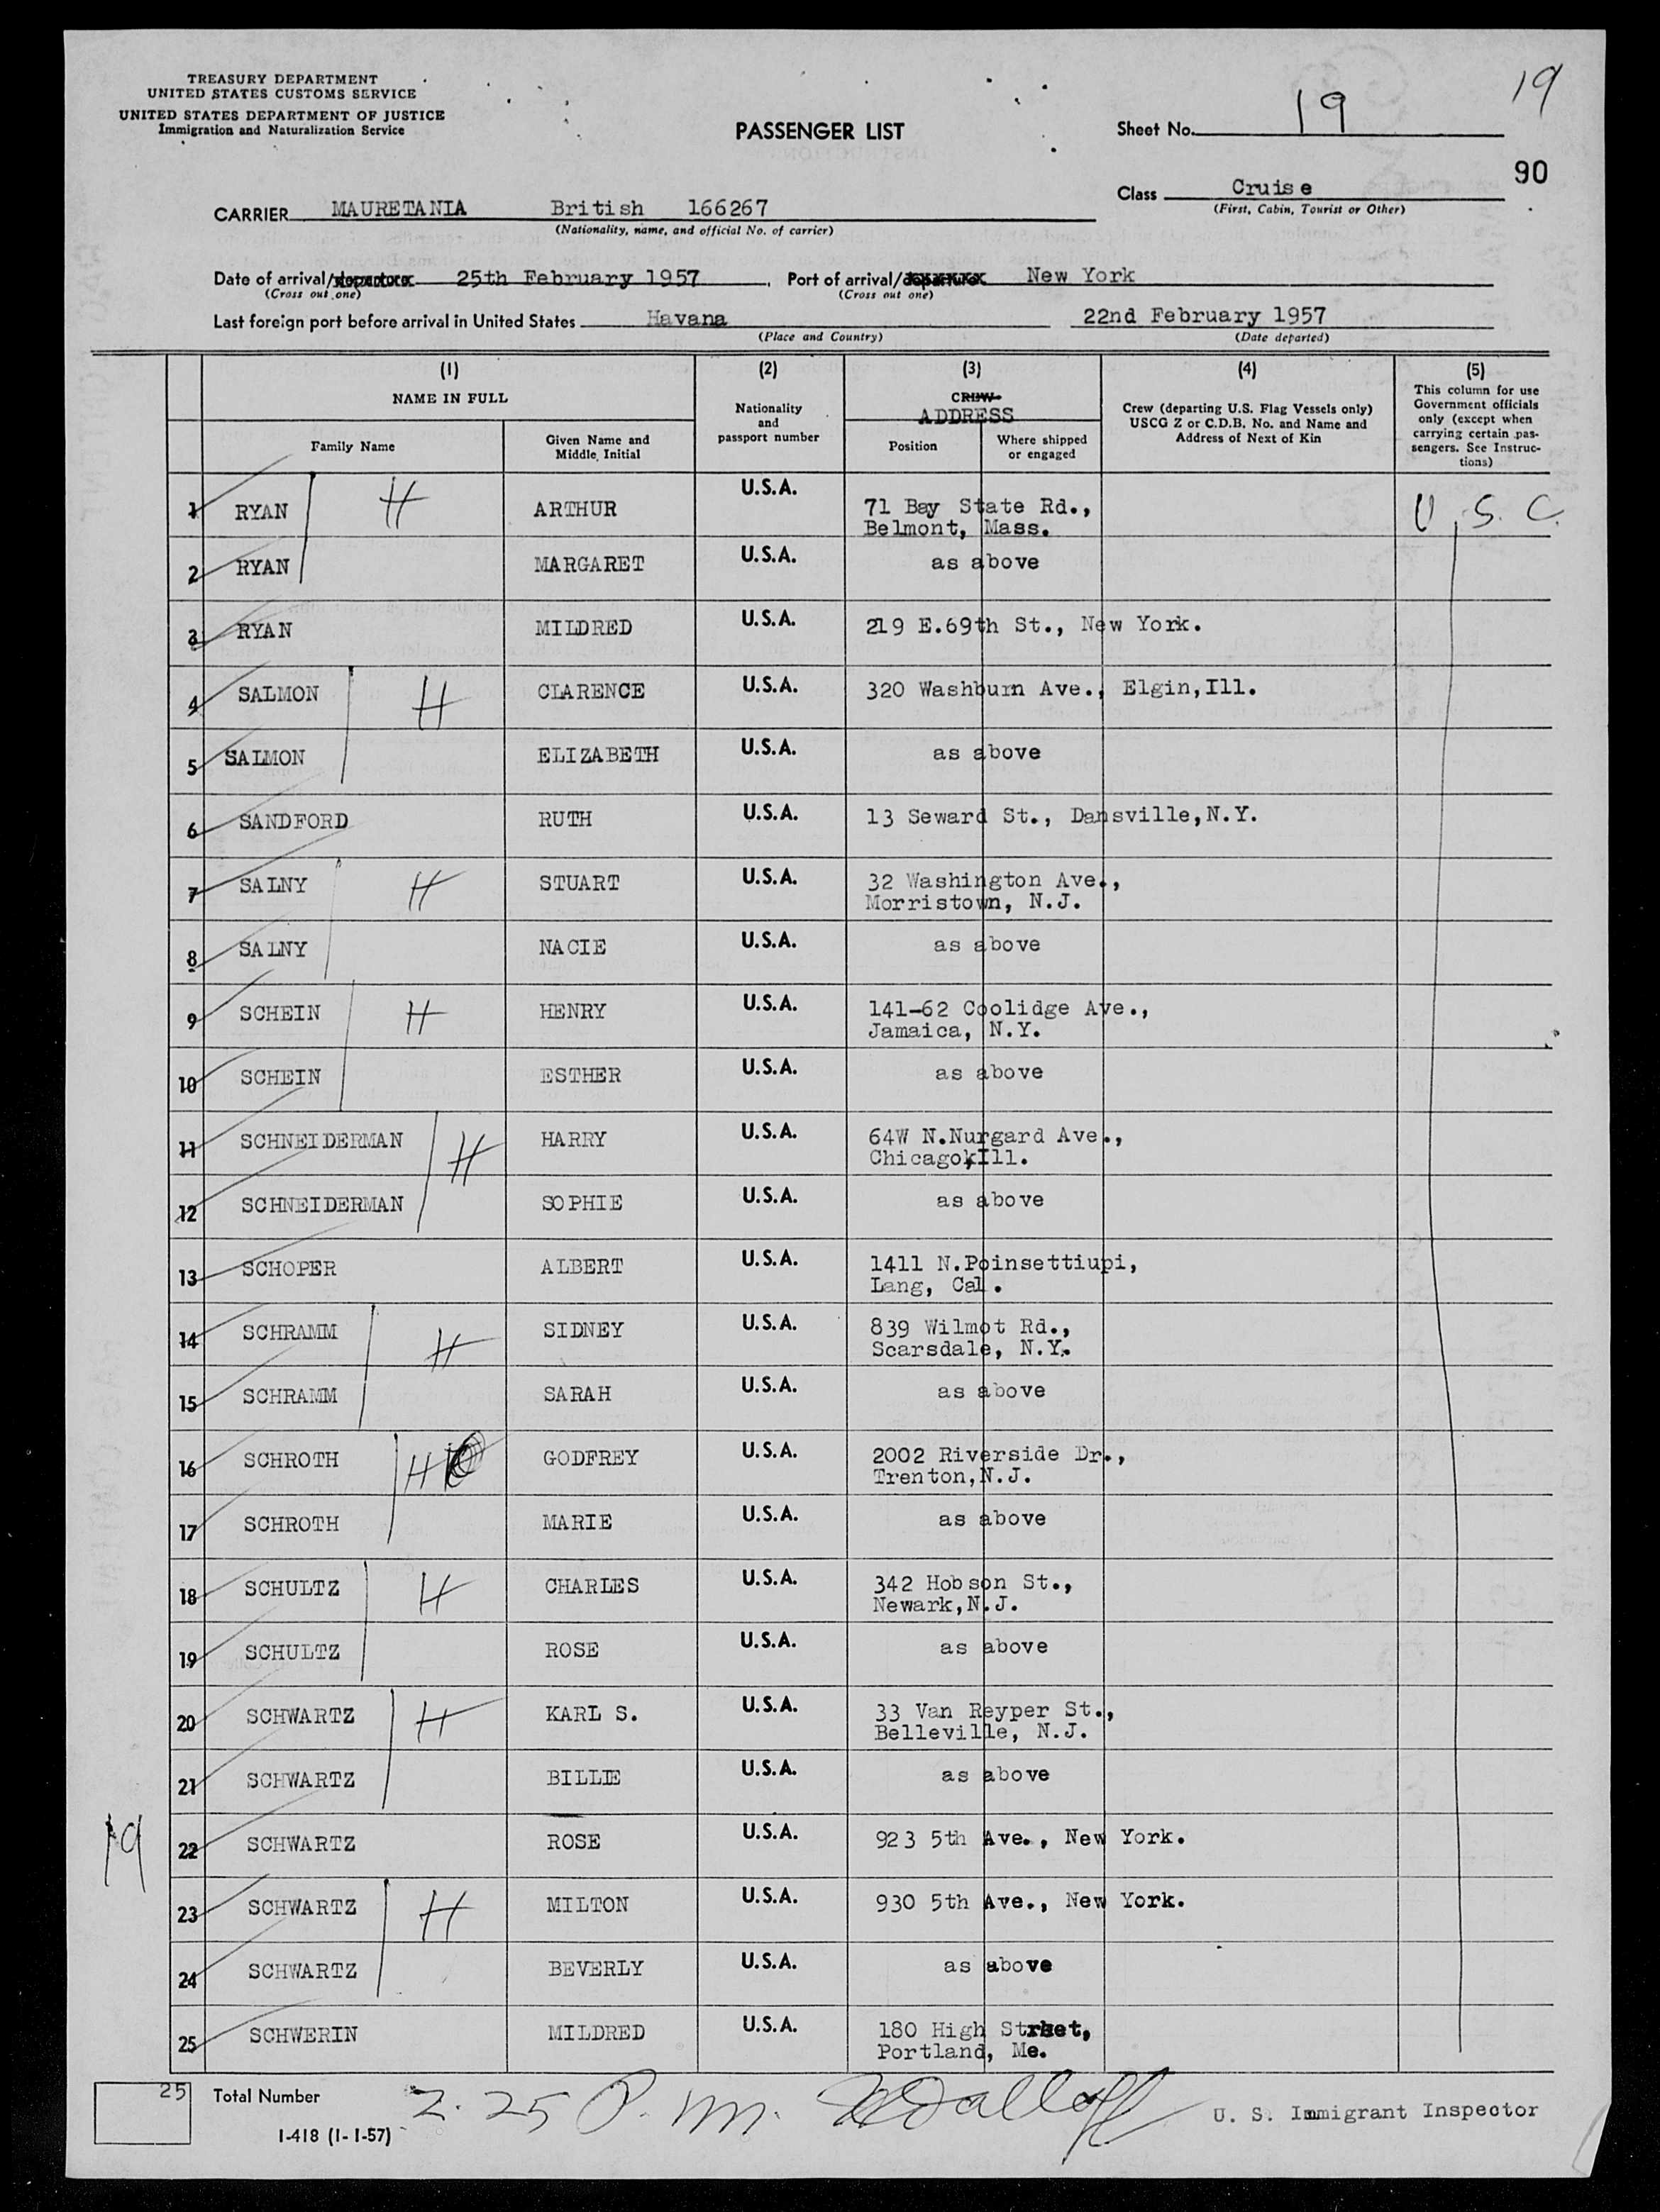 TREASURY DEPARTMENT
UNITED STATES CUSTOMS SERVICE
UNITED STATES DEPARTMENT OF JUSTICE
Immigration and Naturalization Service
PASSENGER LIST
Sheet No. 19
19
90
Class Cruise
(First, Cabin, Tourist or Other)
CARRIER MAURETANIA British 166267
(Nationality, name, and official No. of carrier)
Date of arrival/departure 25th February 1957, Port of arrival/departure New York
(Cross out one) (Cross out one)
Last foreign port before arrival in United States Havana 22nd February 1957
(Place and Country) (Date departed)
(1) (2) (3) (4) (5)
NAME IN FULL
Family Name
Given Name and Middle Initial
Nationality and passport number
CREW
ADDRESS
Position
Where shipped or engaged
Crew (departing U.S. Flag Vessels only) USCG Z or C.D.B. No. and Name and Address of Next of Kin
This column for use Government officials only (except when carrying certain passengers. See Instructions)
1 RYAN H ARTHUR U.S.A. 71 Bay State Rd., U.S.C.
Belmont, Mass.
2 RYAN MARGARET U.S.A. as above
3 RYAN MILDRED U.S.A. 219 E.69th St., New York.
4 SALMON H CLARENCE U.S.A. 320 Washburn Ave., Elgin,Ill.
5 SALMON ELIZABETH U.S.A. as above
6 SANDFORD RUTH U.S.A. 13 Seward St., Dansville,N.Y.
7 SALNY H STUART U.S.A. 32 Washington Ave.,
Morristown, N.J.
8 SALNY NACIE U.S.A. as above
9 SCHEIN H HENRY U.S.A. 141-62 Coolidge Ave.,
Jamaica, N.Y.
10 SCHEIN ESTHER U.S.A. as above
11 SCHNEIDERMAN H HARRY U.S.A. 64W N.Nurgard Ave.,
Chicago,Ill.
12 SCHNEIDERMAN SOPHIE U.S.A. as above
13 SCHOPER ALBERT U.S.A. 1411 N.Poinsettiupi,
Lang, Cal.
14 SCHRAMM H SIDNEY U.S.A. 839 Wilmot Rd.,
Scarsdale, N.Y.
15 SCHRAMM SARAH U.S.A. as above
16 SCHROTH H GODFREY U.S.A. 2002 Riverside Dr.,
Trenton,N.J.
17 SCHROTH MARIE U.S.A. as above
18 SCHULTZ H CHARLES U.S.A. 342 Hobson St.,
Newark,N.J.
19 SCHULTZ ROSE U.S.A. as above
20 SCHWARTZ H KARL S. U.S.A. 33 Van Reyper St.,
Belleville, N.J.
21 SCHWARTZ BILLIE U.S.A. as above
19
22 SCHWARTZ ROSE U.S.A. 923 5th Ave., New York.
23 SCHWARTZ H MILTON U.S.A. 930 5th Ave., New York.
24 SCHWARTZ BEVERLY U.S.A. as above
25 SCHWERIN MILDRED U.S.A. 180 High Street,
Portland, Me.
25 Total Number 2.25 P.m. U. S. Immigrant Inspector
I-418 (1-1-57)